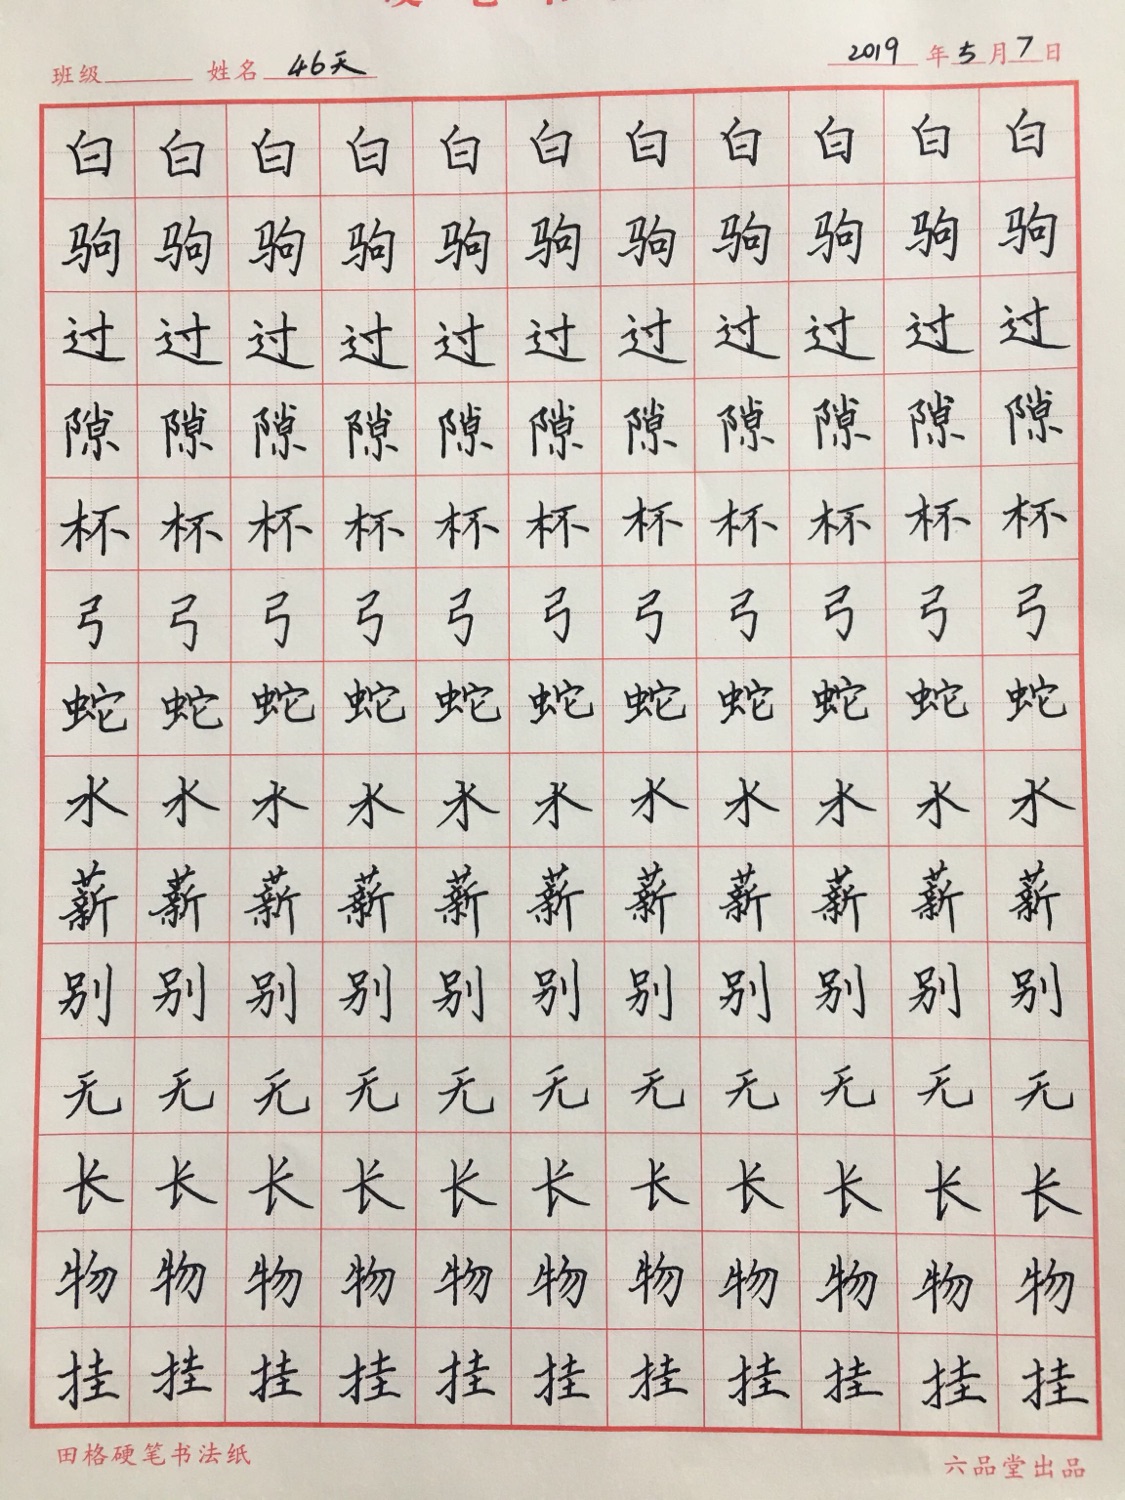 班级 姓名 46天 2019 年 5 月 7 日
白 白 白 白 白 白 白 白 白 白 白
驹 驹 驹 驹 驹 驹 驹 驹 驹 驹 驹
过 过 过 过 过 过 过 过 过 过 过
隙 隙 隙 隙 隙 隙 隙 隙 隙 隙 隙
杯 杯 杯 杯 杯 杯 杯 杯 杯 杯 杯
弓 弓 弓 弓 弓 弓 弓 弓 弓 弓 弓
蛇 蛇 蛇 蛇 蛇 蛇 蛇 蛇 蛇 蛇 蛇
水 水 水 水 水 水 水 水 水 水 水
薪 薪 薪 薪 薪 薪 薪 薪 薪 薪 薪
别 别 别 别 别 别 别 别 别 别 别
无 无 无 无 无 无 无 无 无 无 无
长 长 长 长 长 长 长 长 长 长 长
物 物 物 物 物 物 物 物 物 物 物
挂 挂 挂 挂 挂 挂 挂 挂 挂 挂 挂
田格硬笔书法纸 六品堂出品